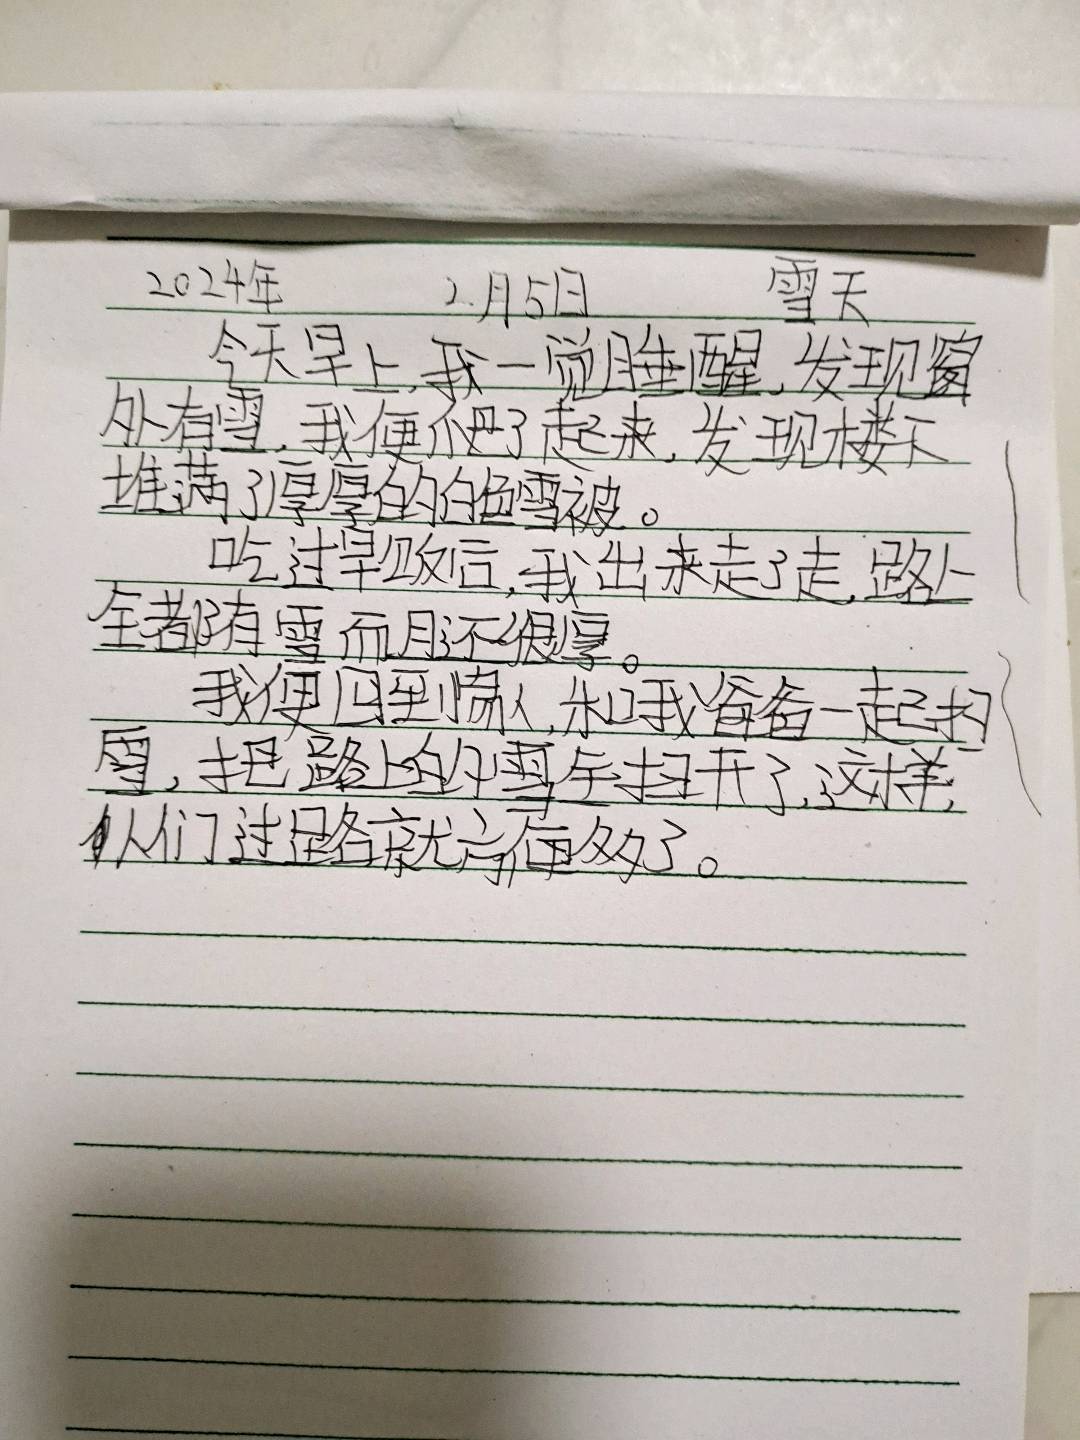 2024年 2月5日 雪天
今天早上,我一觉睡醒,发现窗
外有雪,我便爬了起来,发现楼下
堆满了厚厚的白色雪被。
吃过早饭后,我出来走了走,路上
全都有雪而且还很厚。
我便回到家,和我爸爸一起扫
雪,把路上的雪全扫开了,这样,
人们过路就方便多了。